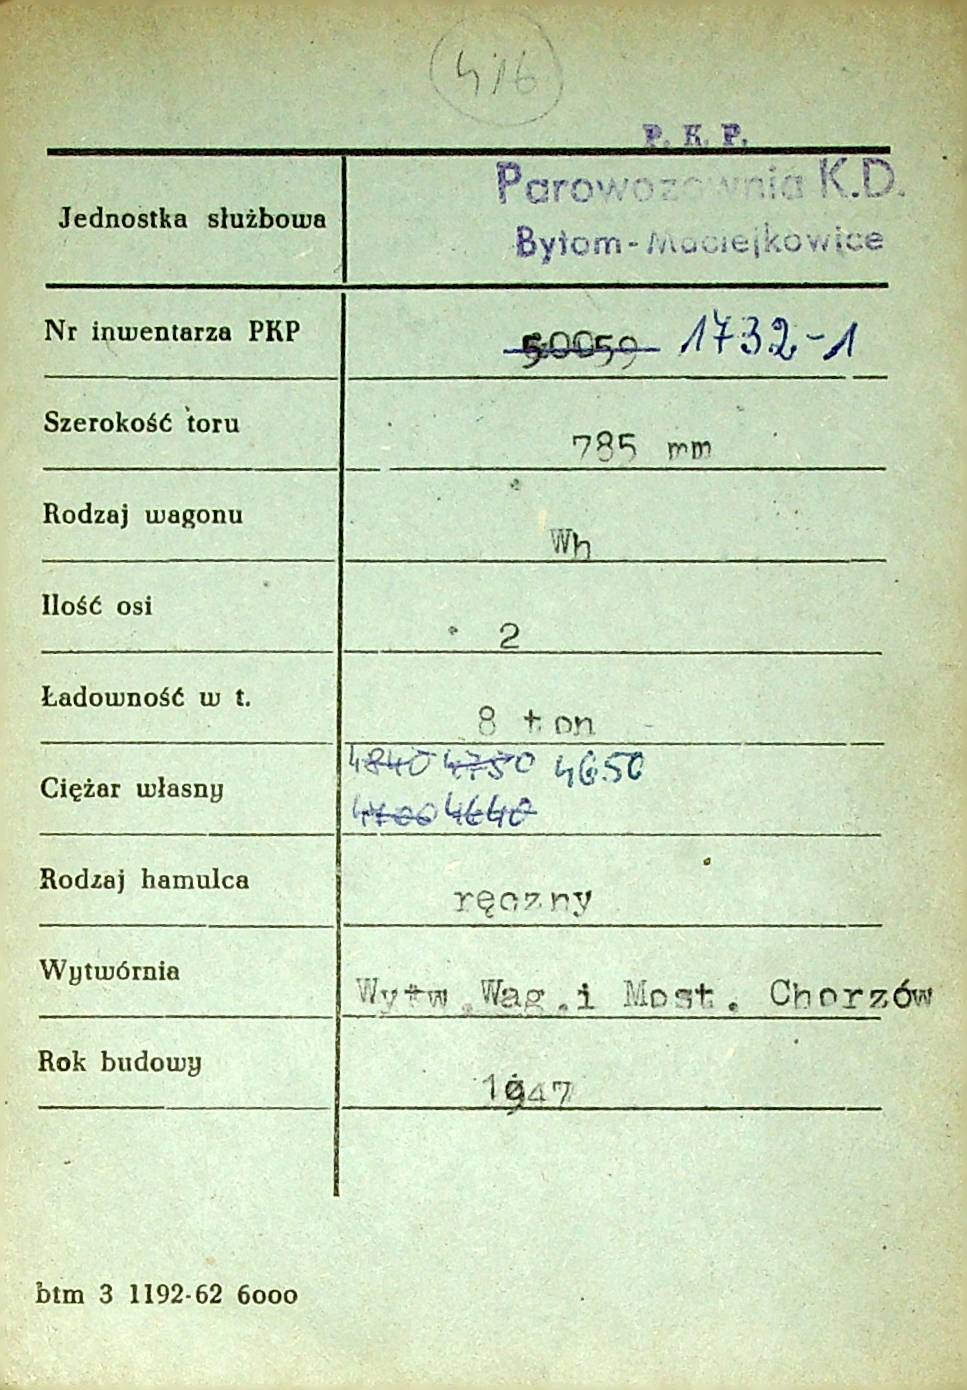 416
P. K. P.
Parowozownia K.D.
Jednostka służbowa
Bytom-Maciejkowice
Nr inwentarza PKP 50059 1732-1
Szerokość toru 785 mm
Rodzaj wagonu Wh
Ilość osi 2
Ładowność w t. 8 ton
4840 4750 4650
Ciężar własny
4700 4640
Rodzaj hamulca ręczny
Wytwórnia Wytw.Wag.i Most. Chorzów
Rok budowy 1947
btm 3 1192-62 6000